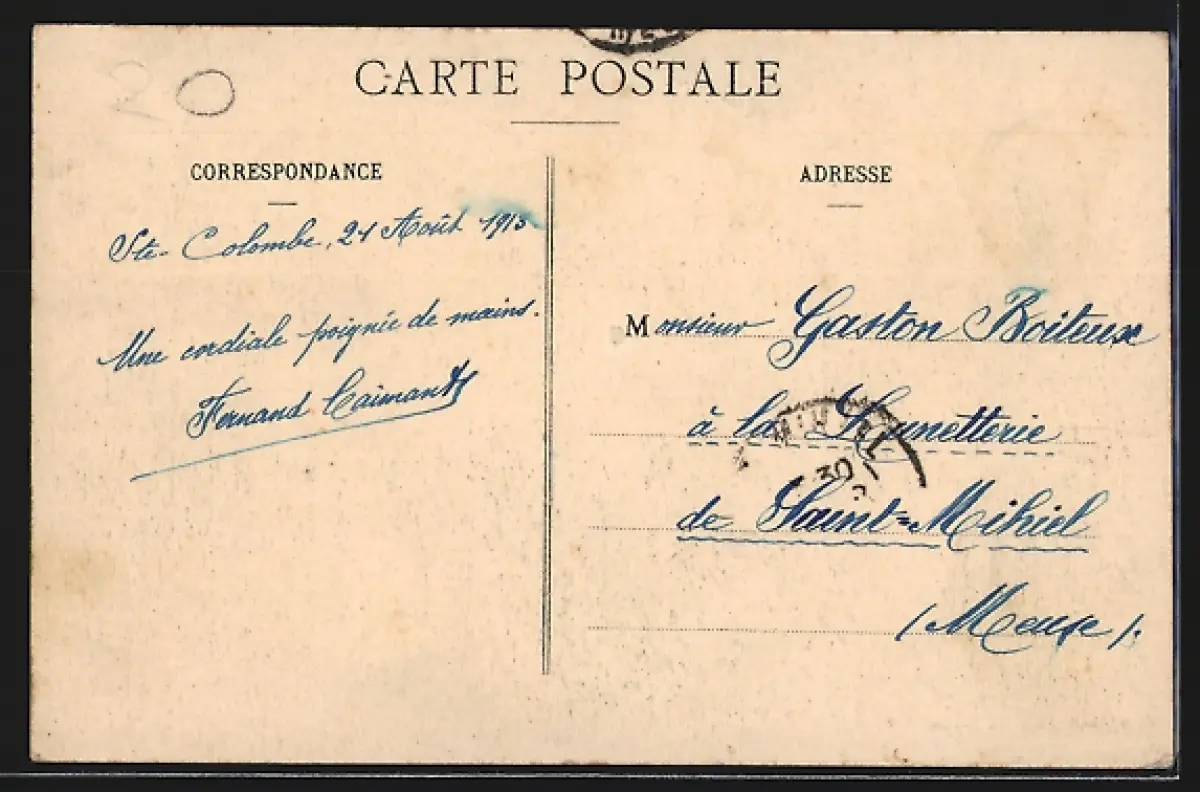 20
CARTE POSTALE
CORRESPONDANCE
Ste-Colombe, 21 Août 1913
Une cordiale poignée de mains.
Fernand
ADRESSE
Monsieur Gaston Boiteux
à la Lunetterie
de Saint=Mihiel
(Meuse).
MIHIEL
30